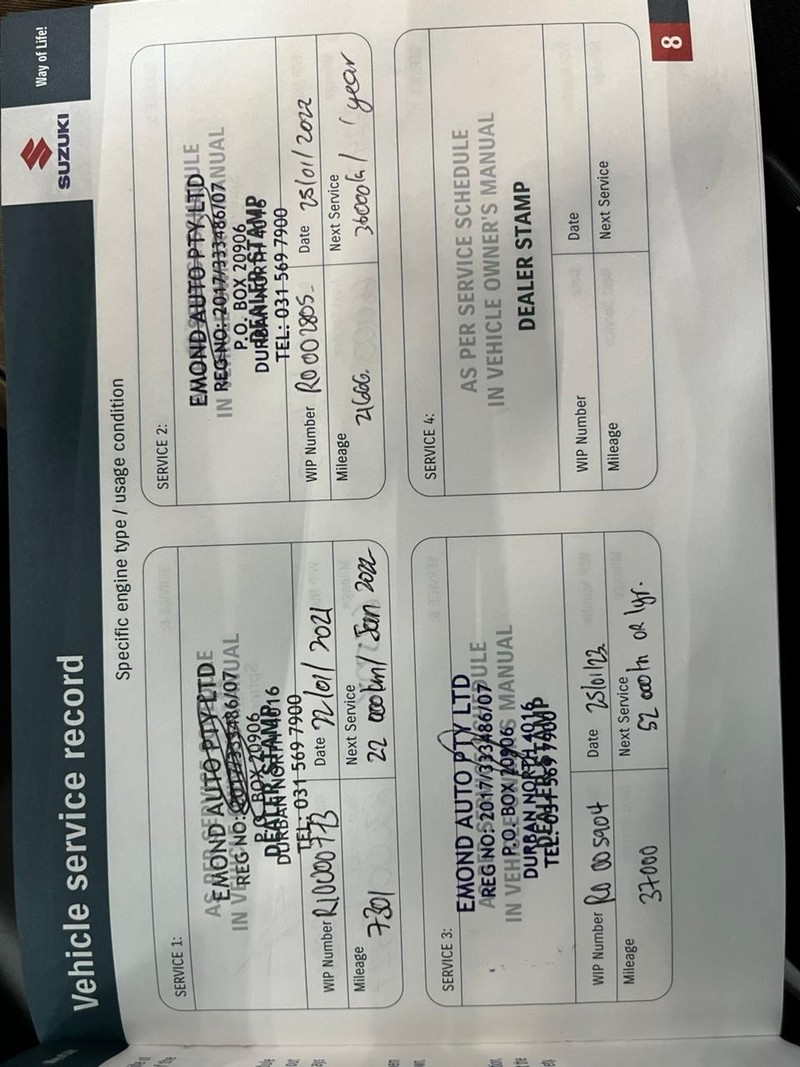 Vehicle service record
SUZUKI
Way of Life!
Specific engine type / usage condition
SERVICE 1:
AS PER SERVICE SCHEDULE
IN VEHICLE OWNER'S MANUAL
DEALER STAMP
EMOND AUTO PTY LTD
REG NO: 2017/333486/07
P.O. BOX 20906
DURBAN NORTH 4016
TEL: 031 569 7900
WIP Number
Date 22/01/2021
Mileage 7301
Next Service 22 000km/ Jan 2022
SERVICE 2:
EMOND AUTO PTY LTD
REG NO: 2017/333486/07
P.O. BOX 20906
DURBAN NORTH 4016
DEALER STAMP
TEL: 031 569 7900
WIP Number R0002805-
Date 25/01/2022
Mileage 21666.
Next Service 36000km / 1 year
SERVICE 3:
EMOND AUTO PTY LTD
REG NO: 2017/333486/07
IN VEHICLE OWNER'S MANUAL
P.O. BOX 20906
DURBAN NORTH 4016
DEALER STAMP
TEL: 031 569 7900
WIP Number R0 005904
Date 25/01/23
Mileage 37000
Next Service 52 000km OR 1yr.
SERVICE 4:
AS PER SERVICE SCHEDULE
IN VEHICLE OWNER'S MANUAL
DEALER STAMP
WIP Number
Date
Mileage
Next Service
8